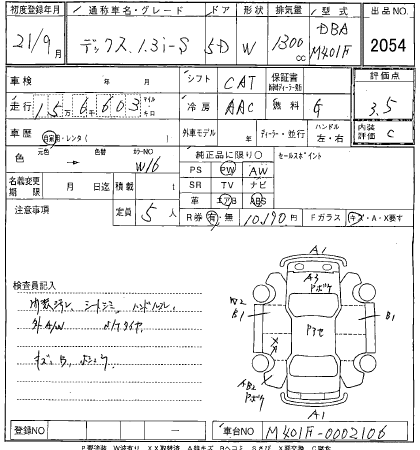 初度登録年月 通称車名・グレード ドア 形状 排気量 型式 出品NO.
21/9月 デックス 1.3i-S 5D W 1300cc DBA M401F 2054
車検 年 月 シフト CAT 保証書 評価点
走行 15万6603 マイル・キロ 冷房 AAC 燃料 G 3.5
車歴 自家用・レンタ( ) 外車モデル 年 ディーラー・並行 ハンドル 左・右 内装評価 C
色 元色 → 色替 カラーNO W16 純正品に限り○ セールスポイント
PS PW AW
名義変更期限 月 日迄 積載 t SR TV ナビ
革 エアB ABS
注意事項 定員 5人 R券 有・無 10190円 Fガラス キズ・A・X要す
検査員記入
内装ヨゴレ、シートシミ、ハンドルスレ
外A/W
キズ、B、
A1
A3
Pボケ
W2
B1
P3セ
B1
A1
登録NO ― 車台NO M401F-0002106
P要塗装 W波有り XX取替済 A線キズ Bヘコミ Sさび X要交換 C腐食